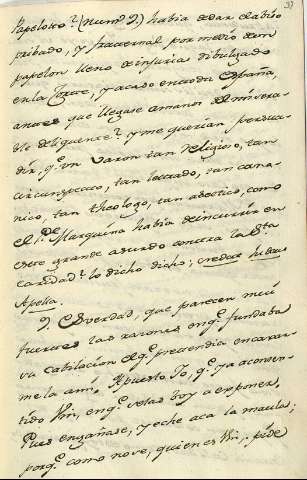 Papeloto? (num.º 2.) havia de dar el aviso
pribado, y fraternal por medio de un
papelon lleno de injuria dibulgado
en la Corte, y acaso en toda España,
antes que llegase a manos del misera-
ble delinquente? y me querian persua-
dir, q.e un varon tan religioso, tan
circunspecto, tan letrado, tan cano-
nico, tan theologo, tan adectico, como
el P.e Marquina havia de incurrir en
este grande absurdo contra la S.ta
caridad? lo dicho dicho; credat Iudeus
Apella.
9. Es verdad, que parecen mui
fuertes las razones en q.e fundaba
su cabilacion el q.e pretendia encaxar-
mela a mi. Apuesto Yo, q.e ya a
tido en q.e velas boy a exponer,
Pues engañase, y eche aca la maula;
porq.e como no ve, quien es pide